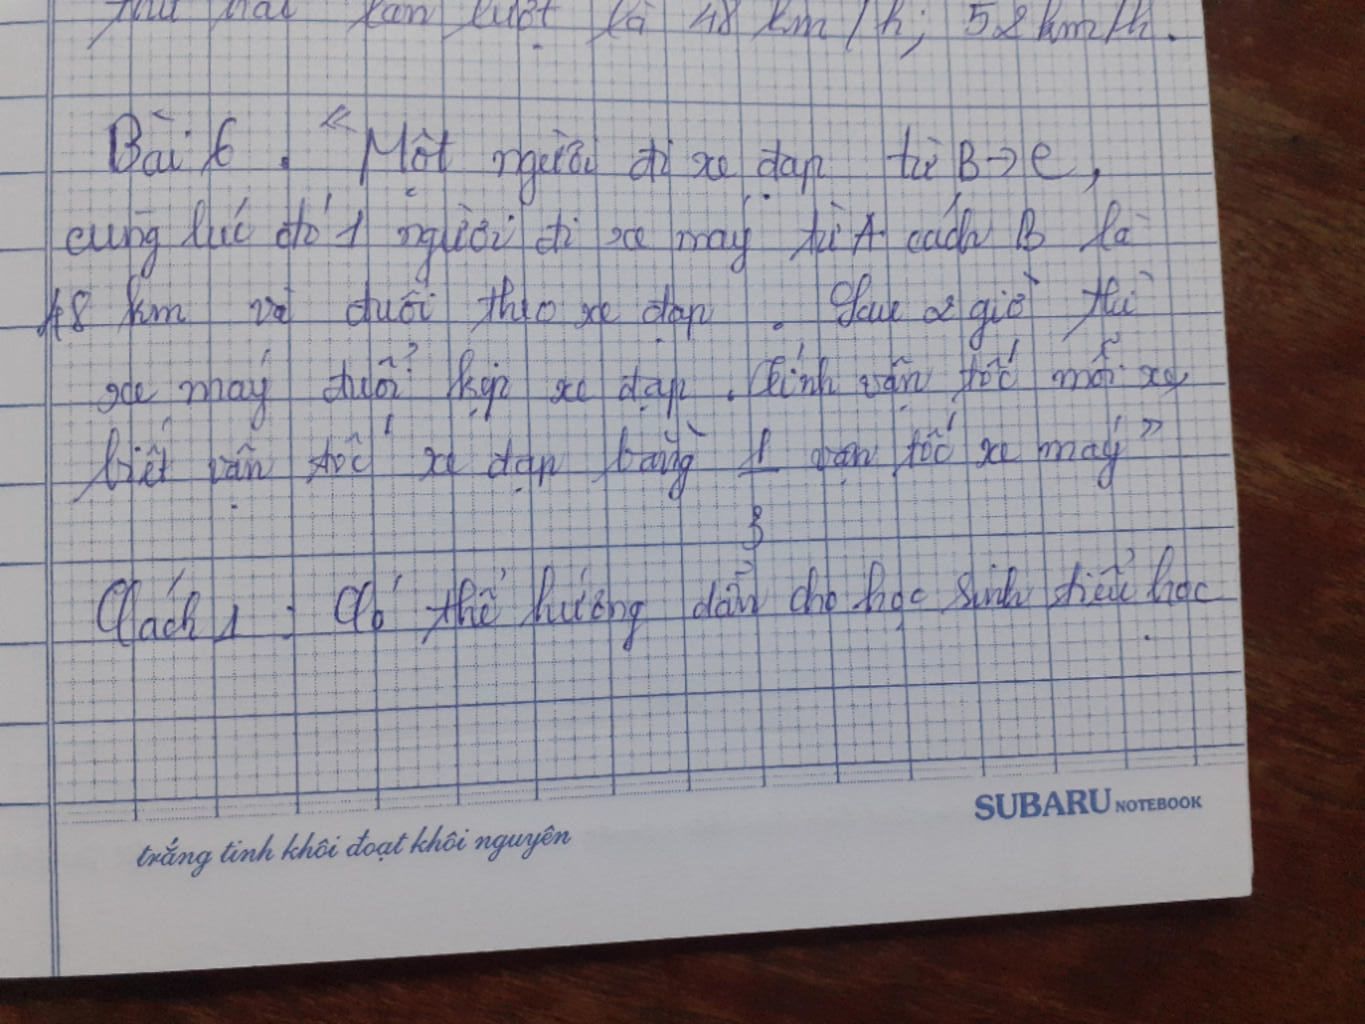 thứ hai lần lượt là 48 km/h; 52 km/h.
Bài 6. "Một người đi xe đạp từ B→C,
cùng lúc đó 1 người đi xe máy từ A cách B là
48 km và đuổi theo xe đạp. Sau 2 giờ thì
xe máy đuổi kịp xe đạp. Tính vận tốc mỗi xe
biết vận tốc xe đạp bằng 1/3 vận tốc xe máy"
Cách 1: Có thể hướng dẫn cho học sinh tiểu học
SUBARU NOTEBOOK
trắng tinh khôi đoạt khôi nguyên